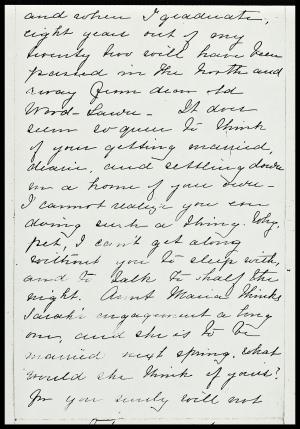 and when I graduate,
eight years out of my
twenty two will have been
passed in the North and
away from dear old
Wood-Lawn - It does
seem so queer to think
of your getting married,
dearie, and settling down
in a home of your own -
I cannot realize you can
doing such a thing. Why,
pet, I can't get along
without you to sleep with,
and to talk to half the
night. Aunt Maria thinks
Sarah's engagement a long
one, and she is to be
married next spring. What
would she think of yours?
For you surely will not